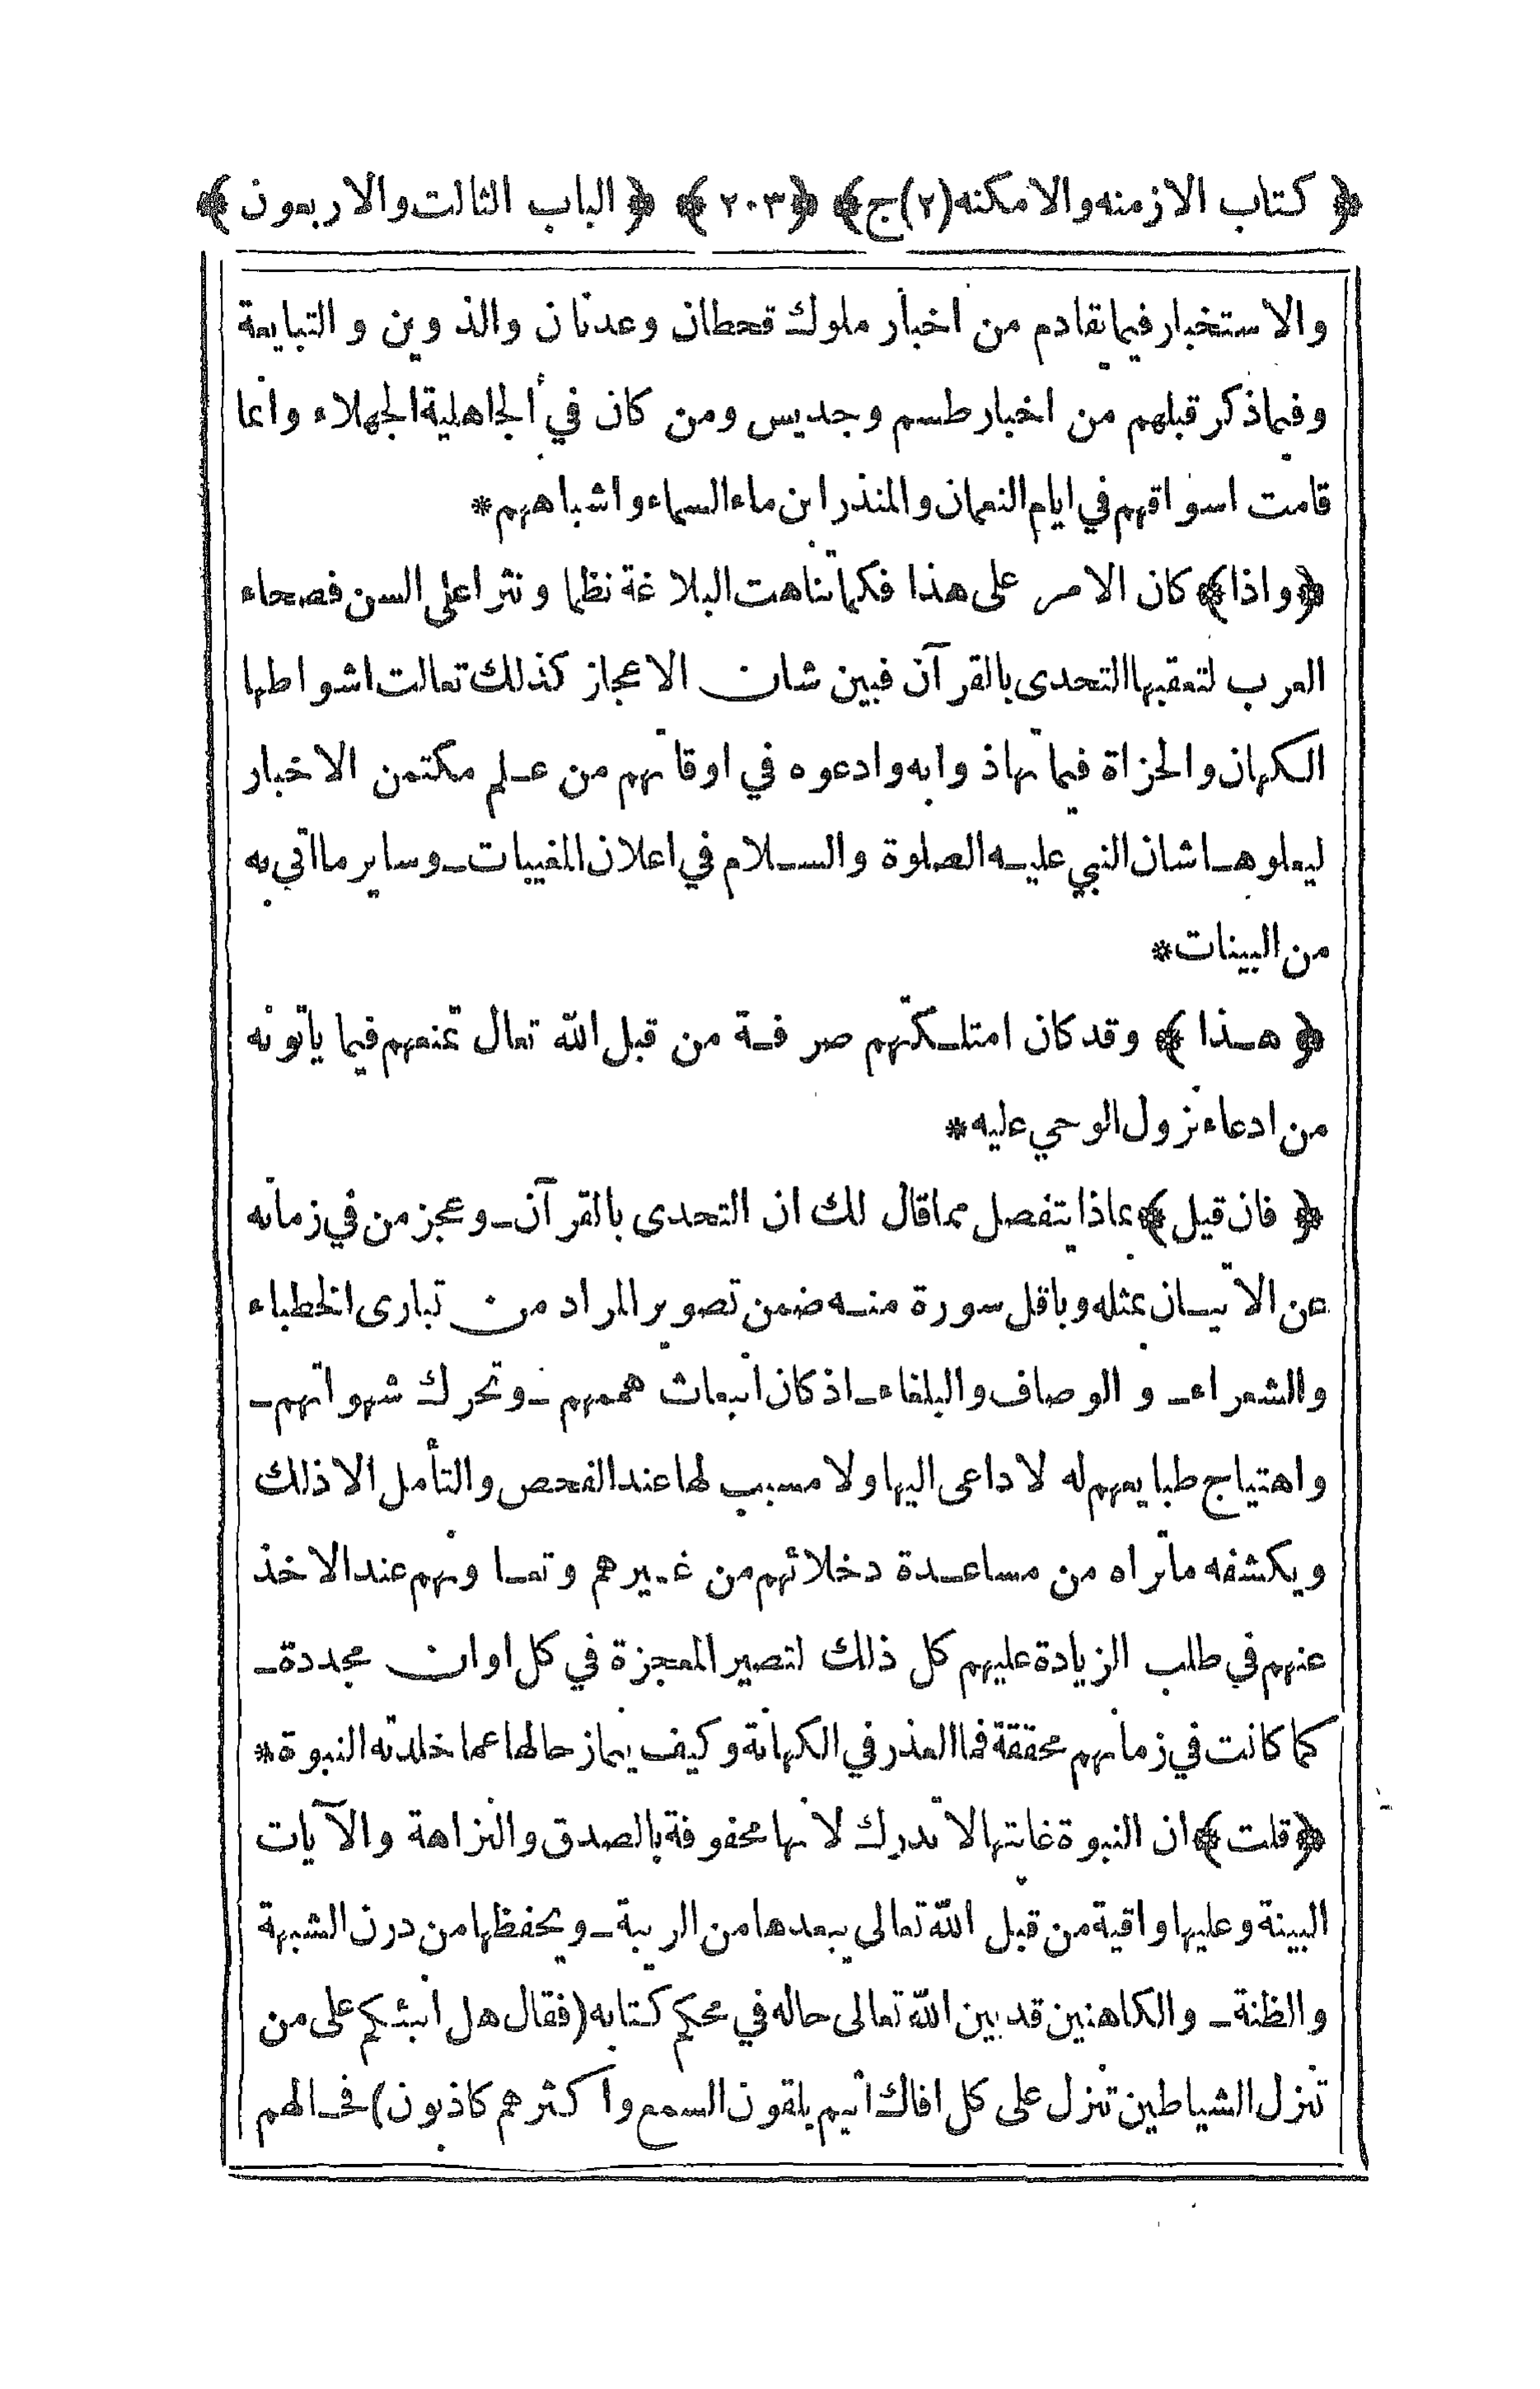 ﴿ كتاب الازمنه والامكنه (٢) ج ﴾ ﴿ ٢٠٣ ﴾ ﴿ الباب الثالث والاربعون ﴾
والاستخبار فيما تقادم من اخبار ملوك قحطان وعدنان والذوين والتبايعة
وفيما ذكر قبلهم من اخبار طسم وجديس ومن كان في الجاهلية الجهلاء وانما
قامت اسواقهم في ايام النعمان والمنذر ابن ماء السماء واشباههم *
﴿ واذا ﴾ كان الامر على هذا فكما تناهت البلاغة نظما ونثرا على السن فصحاء
العرب لتعقبها التحدى بالقرآن فبين شان الاعجاز كذلك تعالت اشواطها
الكهان والحزاة فيما تهاذوا به وادعوه في اوقاتهم من علم مكتمن الاخبار
ليعلو هـا شان النبي عليه الصلوة والسلام في اعلان المغيبات ـ وساير ما اتى به
من البينات *
﴿ هـذا ﴾ وقد كان امتلـكتهم صرفة من قبل الله تعال تمنعهم فيما ياتونه
من ادعاء نزول الوحي عليه *
﴿ فان قيل ﴾ بماذا يتفصل مما قال لك ان التحدى بالقرآن ـ وعجز من في زمانه
عن الاتيـان بمثله وباقل سورة منـه ضمن تصوير المراد من تبارى الخطباء
والشعراء ـ والوصاف والبلغاء ـ اذ كان انبعاث هممهم ـ وتحرك شهواتهم ـ
واهتياج طبايعهم له لا داعى اليها ولا مسبب لها عند الفحص والتأمل الا ذلك
ويكشفه ما تراه من مساعدة دخلائهم من غيرهم وتعـاونهم عند الاخذ
عنهم في طلب الزيادة عليهم كل ذلك لتصير المعجزة في كل اوان مجددة ـ
كما كانت في زمانهم محققة فما العذر في الكهانة وكيف يماز حالها عما خلدته النبوة *
﴿ قلت ﴾ ان النبوة غايتها لا تدرك لانها محفوفة بالصدق والنزاهة والآيات
البينة وعليها واقية من قبل الله تعالى يبعدها من الريبة ـ ويحفظها من درن الشبهة
والظنة ـ والكاهنين قد بين الله تعالى حاله في محكم كتابه (فقال هل انبئكم على من
تنزل الشياطين تنزل على كل افاك اثيم يلقون السمع واكثرهم كاذبون) فحـالهم